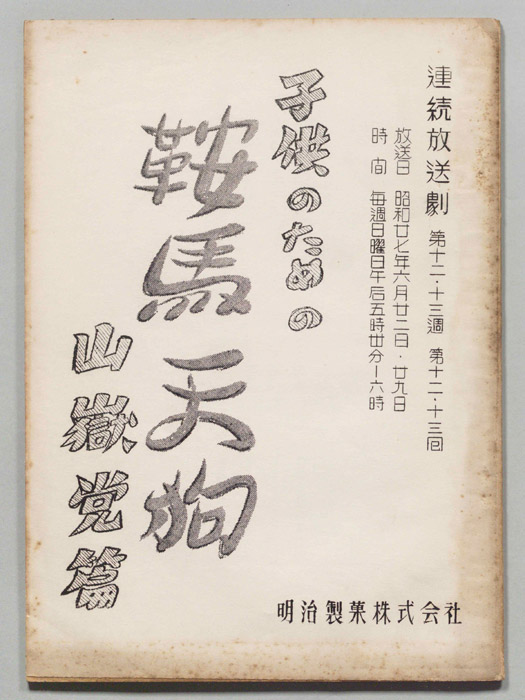 連続放送劇 第十二・十三週 第十二・十三回
放送日 昭和廿七年六月廿二日・廿九日
時間 毎週日曜日午后五時卅分ー六時
子供のための
鞍馬天狗
山嶽党篇
明治製菓株式会社